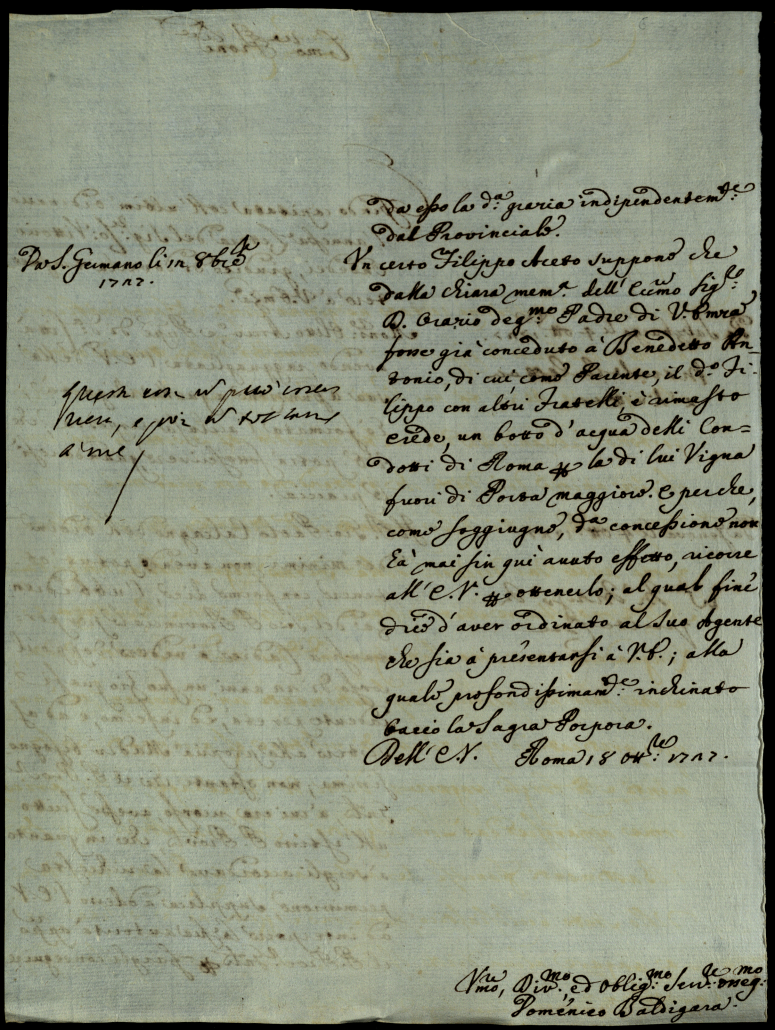 Da esso la d.ª grazia indipendentem.te
dal Provinciale.
Un certo Filippo Aceto suppone che
dalla chiara mem.ª dell' Ecc.mo Sig.re
D. Orazio deg.mo Padre di V. Em.za
fosse già conceduto à Benedetto An-
tonio, di cui, come Parente, il d.º Fi-
lippo con altri Fratelli, è rimasto
erede, un botto d'acqua delli Con-
dotti di Roma la di lui Vigna
fuori di Porta maggiore. e perche,
come soggiugne, d.ª concessione non
hà mai sin qui avuto effetto, ricorre
all' E.V. ottenerlo; al qual fine
dice d'aver ordinato al suo Agente
che sia à presentarsi à V.E.; alla
quale profondissimam.te inchinato
baccio la Sagra Porpora.
Dell' E.V. Roma 18 Ott.re 1727.
V.ro, Div.mo, ed Oblig.mo Ser.re osseq.mo
Domenico Baldigara.
Da S. Germano li 8bre
1727.
questa cosa si può
e poi
à me